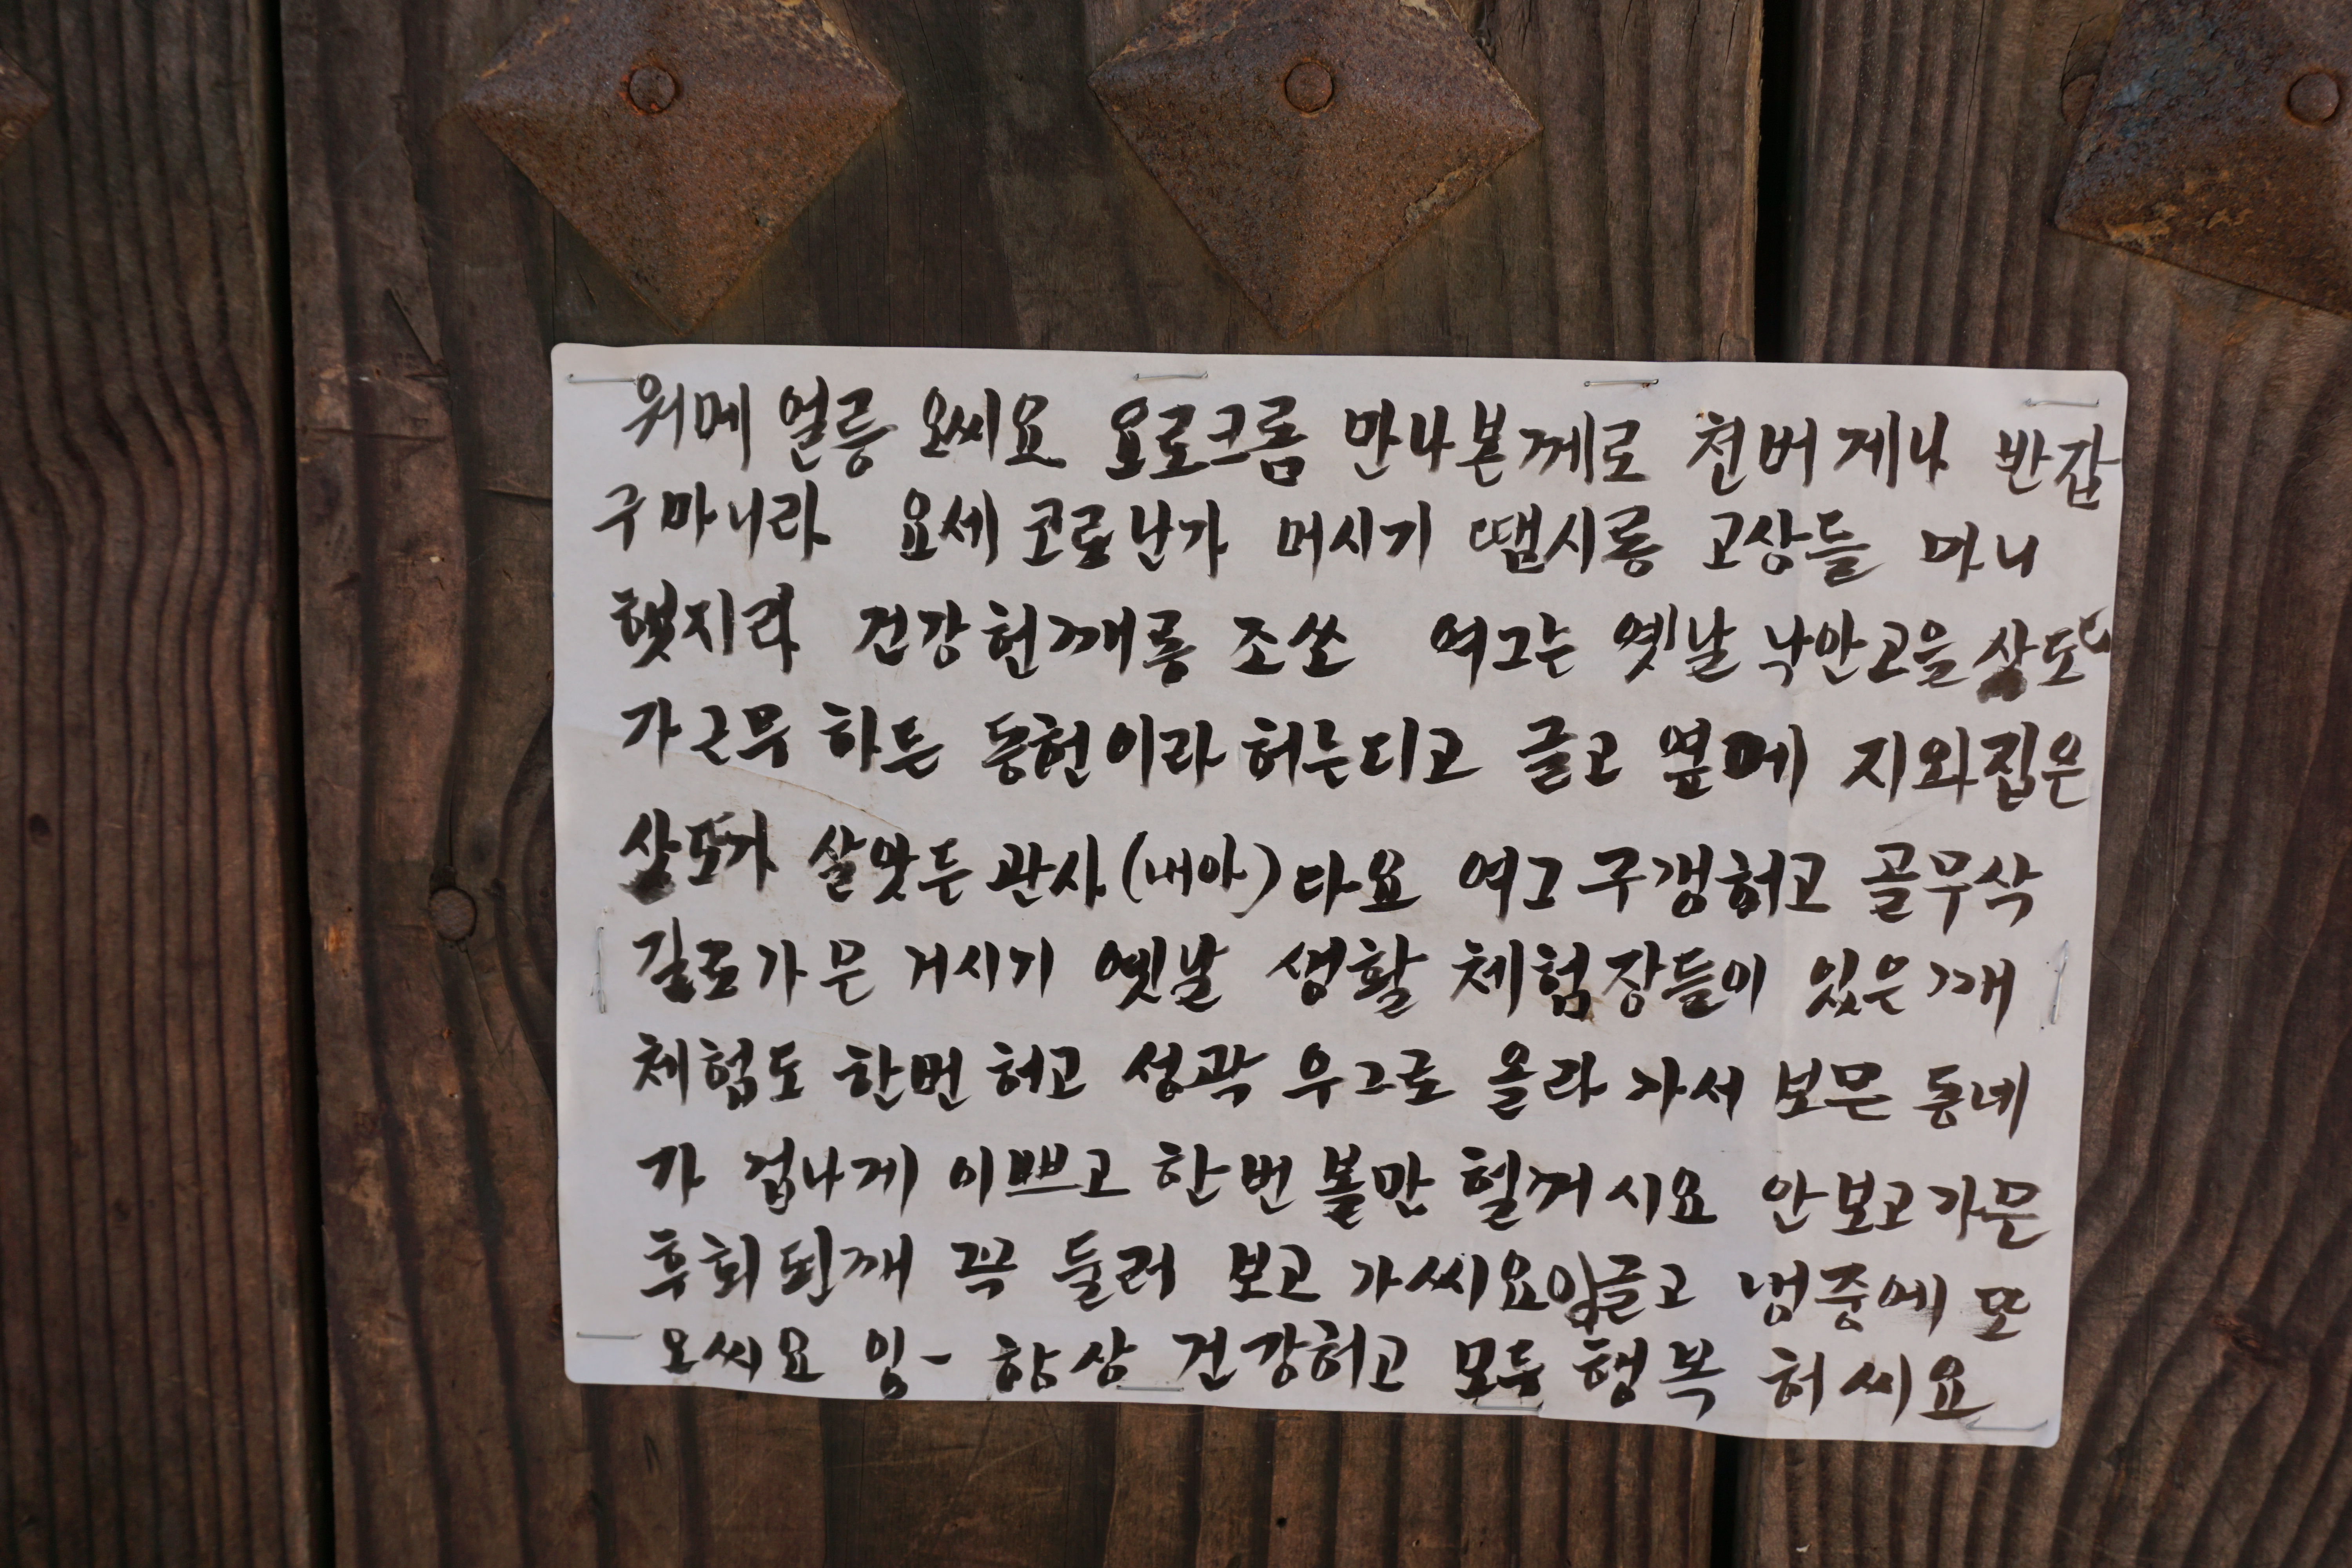 워메 얼릉 오씨요 요로크롬 만나본께로 천버게나 반갑
구마니라 요세 코로난가 머시기 땜시롱 고상들 마니
햇지라 건강헌깨롱 조쏘 여그는 옛날 낙안고을 상도
가근무 하든 동헌이라허는디고 글고 옆에 지와집은
상도가 살앗든 관사(내아)다요 여그 구갱허고 골무삭
길로가믄 거시기 옛날 생활 체험장들이 있은깨
체험도 한번 허고 성곽 우그로 올라 가서 보믄 동네
가 겁나게 이쁘고 한번 볼만 헐꺼시요 안보고가믄
후회된깨 꼭 둘러 보고 가씨요잉글고 냉중에 또
오씨요 잉- 항상 건강허고 모두 행복 허씨요